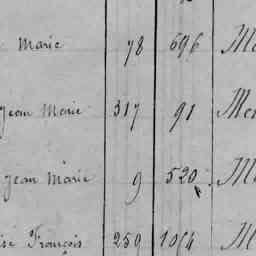 Marie 78 696 M
Jean Marie 317 91 Me
Jean Marie 9 520 M
François 259 1064 M